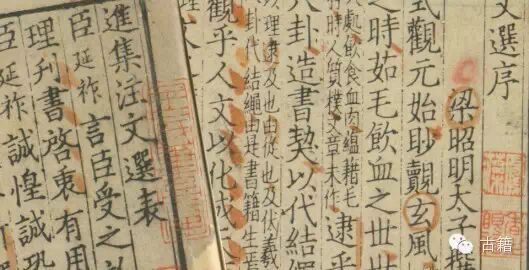 文選序
梁昭明太子撰
式觀元始眇覿玄風
之時茹毛飲血之世世
飲食血肉縕藉毛
時質樸文章未作
逮乎
八卦造書契以代結繩
逮及也由從也伏羲
卦代結繩由是書籍生焉
觀乎人文以化成
進集注文選表
臣延祚言臣受之於
理刋書啓衷有用
臣延祚誠惶誠恐
古籍